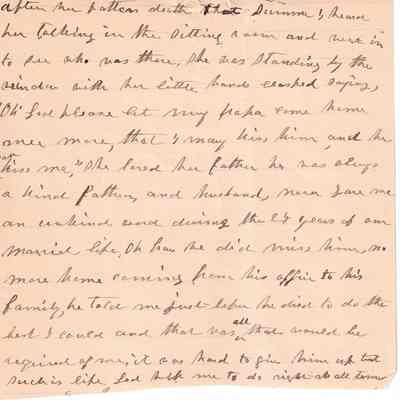 after her fathers death that Summer I, heard
her talking in the sitting room and went in
to see who was there, she was standing by the
window with her little hands clasped saying,
"Oh' God please let my papa come home
once more, that "I may kiss him, and he
can kiss me," She loved her father he was always
a kind father, and husband, never gave me
an unkind word during the years of our
married life, Oh how we did miss him, no
more home coming from his office to his
family, he told me just before he died to do the
best I could and that was all that would be
required of me, it was hard to give him up but
such is life, God help me to do right at all times